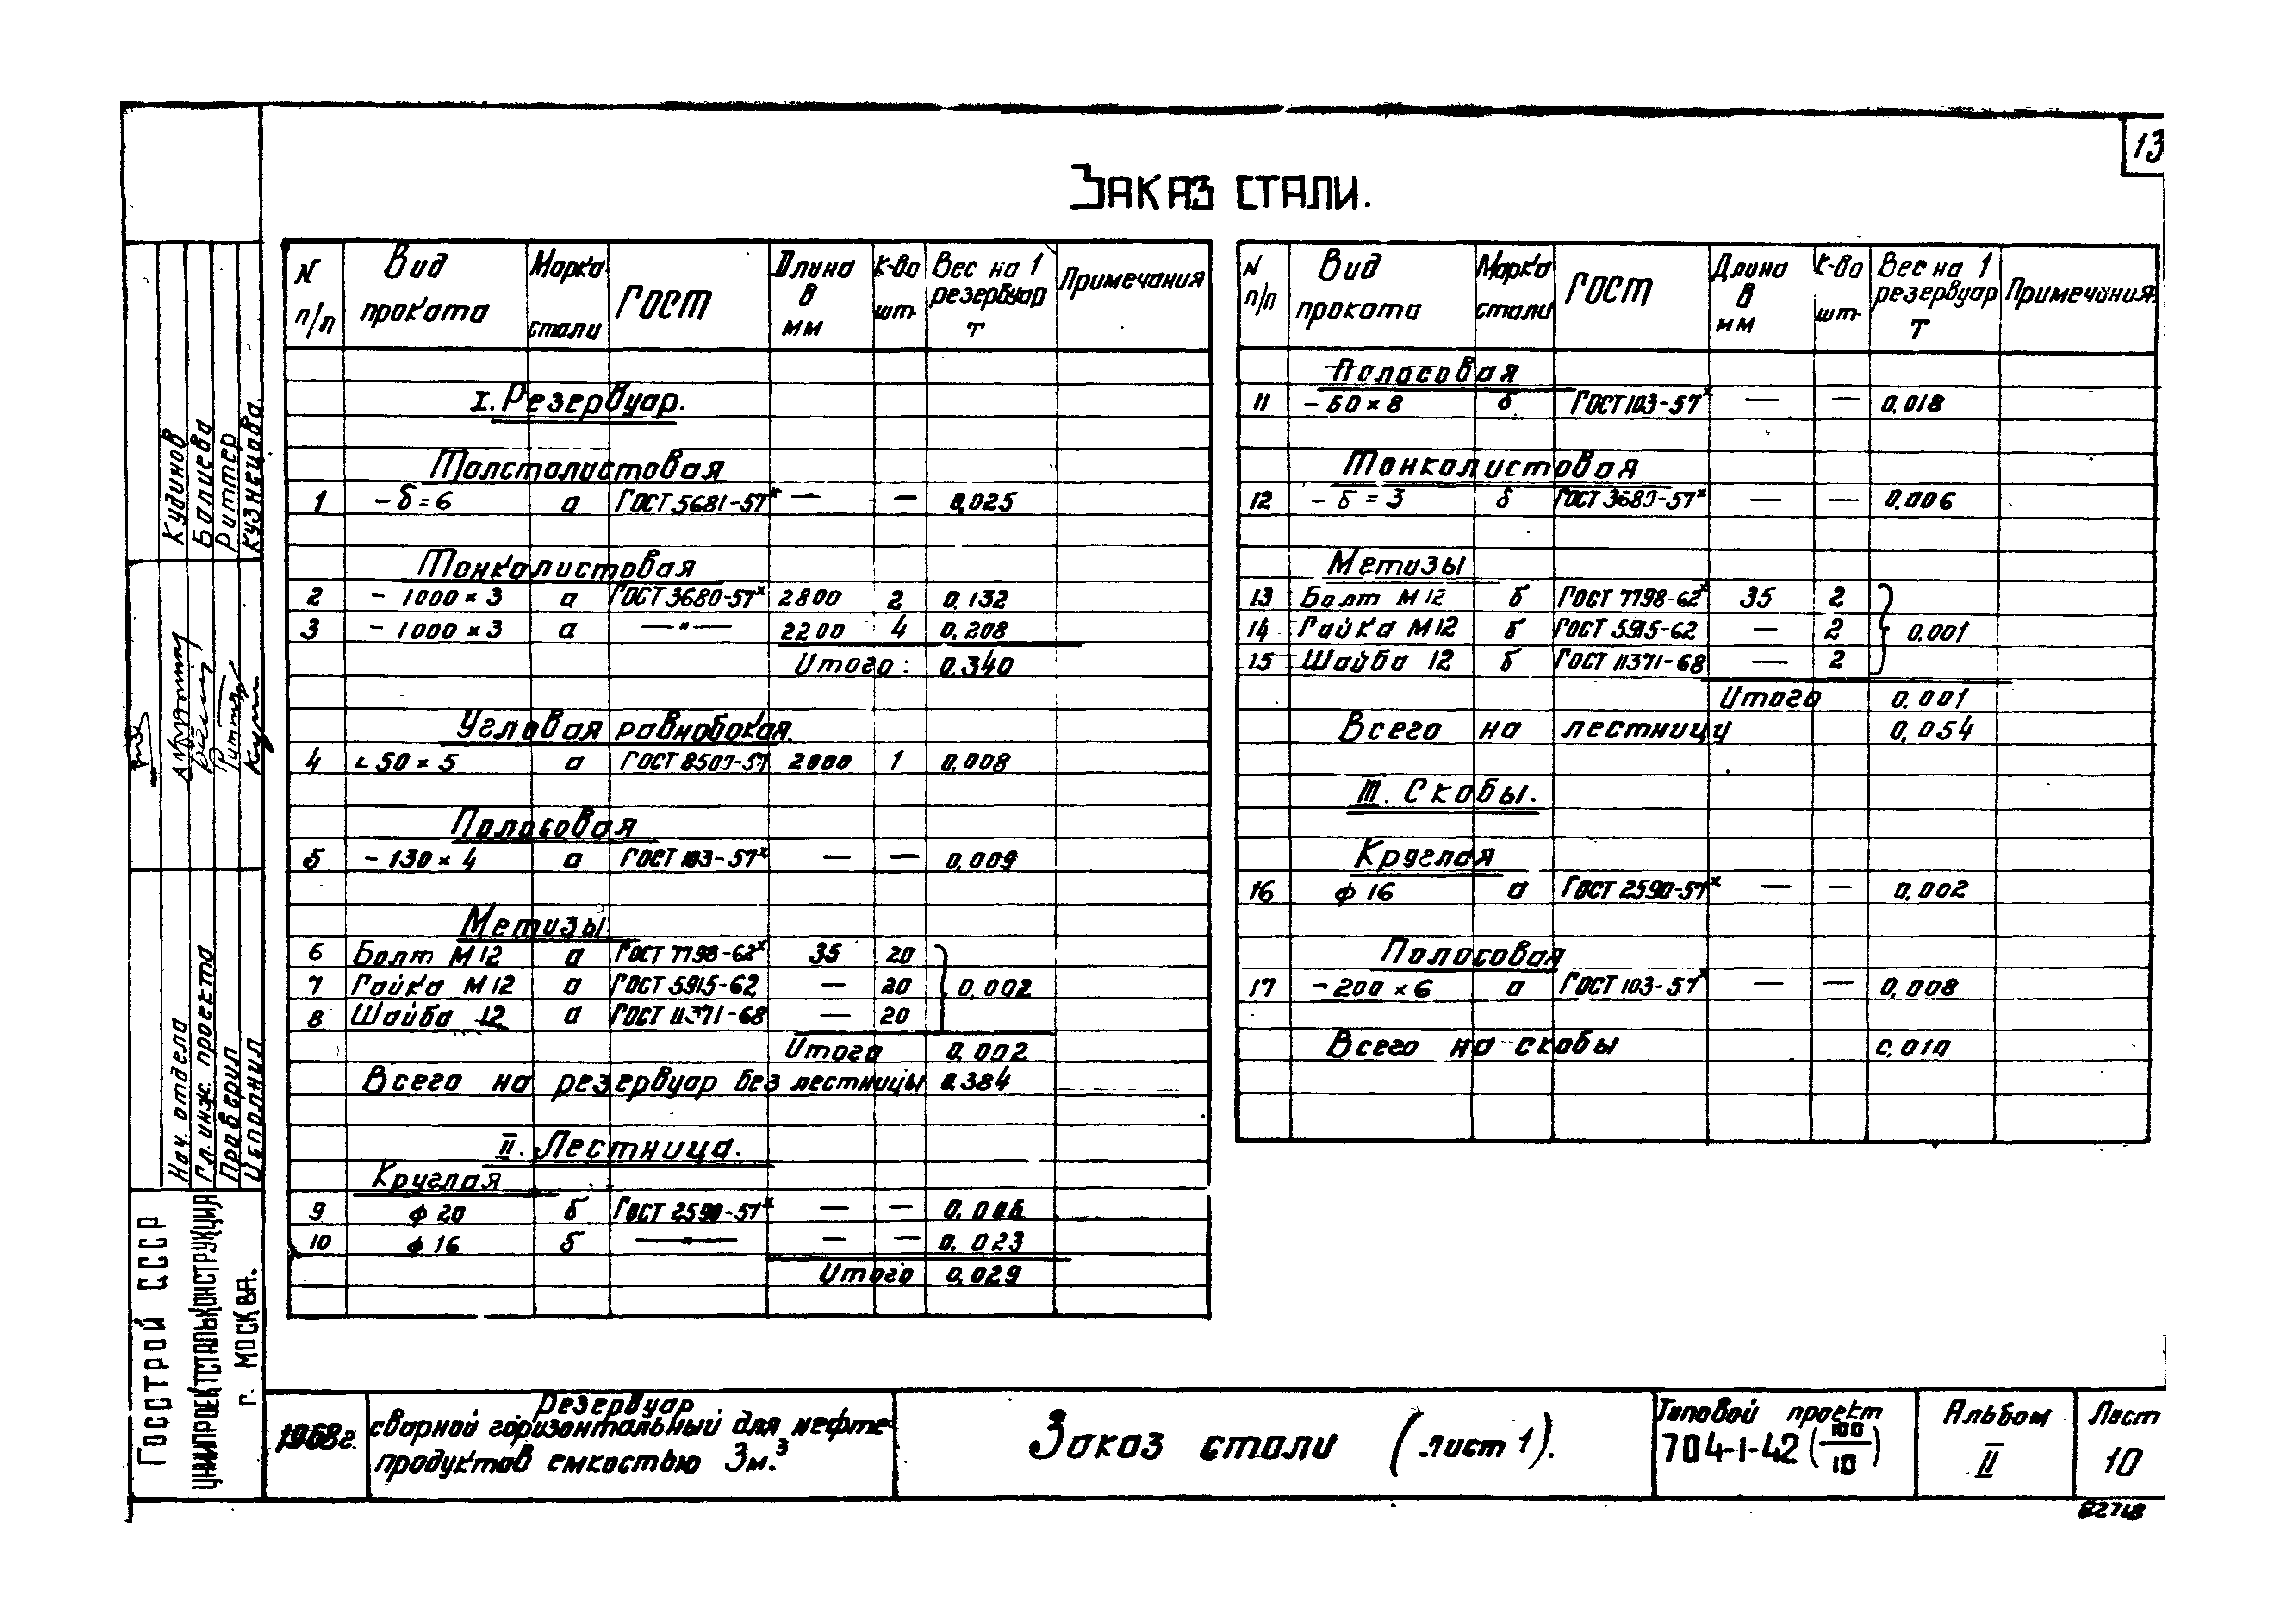 13
Заказ стали.
N п/п | Вид проката | Марка стали | ГОСТ | Длина в мм | К-во шт. | Вес на 1 резервуар т | Примечания
I. Резервуар.
Толстолистовая
1 | - δ = 6 | а | ГОСТ 5681-57ˣ | — | — | 0,025
Тонколистовая
2 | - 1000 × 3 | а | ГОСТ 3680-57ˣ | 2800 | 2 | 0,132
3 | - 1000 × 3 | а | —"— | 2200 | 4 | 0,208
Итого: 0,340
Угловая равнобокая.
4 | ∟ 50 × 5 | а | ГОСТ 8509-57 | 2000 | 1 | 0,008
Полосовая
5 | - 130 × 4 | а | ГОСТ 103-57ˣ | — | — | 0,009
Метизы.
6 | Болт М12 | а | ГОСТ 7798-62ˣ | 35 | 20
7 | Гайка М12 | а | ГОСТ 5915-62 | — | 20 | 0,002
8 | Шайба 12 | а | ГОСТ 11371-68 | — | 20
Итого 0,002
Всего на резервуар без лестницы 0,384
II. Лестница.
Круглая
9 | ф 20 | б | ГОСТ 2590-57ˣ | — | — | 0,006
10 | ф 16 | б | —"— | — | — | 0,023
Итого 0,029
N п/п | Вид проката | Марка стали | ГОСТ | Длина в мм | К-во шт. | Вес на 1 резервуар т | Примечания.
Полосовая
11 | - 60 × 8 | б | ГОСТ 103-57ˣ | — | — | 0,018
Тонколистовая
12 | - δ = 3 | б | ГОСТ 3680-57ˣ | — | — | 0,006
Метизы
13 | Болт М12 | б | ГОСТ 7798-62ˣ | 35 | 2
14 | Гайка М12 | б | ГОСТ 5915-62 | — | 2 | 0,001
15 | Шайба 12 | б | ГОСТ 11371-68 | — | 2
Итого 0,001
Всего на лестницу 0,054
III. Скобы.
Круглая
16 | ф 16 | а | ГОСТ 2590-57ˣ | — | — | 0,002
Полосовая
17 | - 200 × 6 | а | ГОСТ 103-57ˣ | — | — | 0,008
Всего на скобы 0,010
Кудинов
Балиева
Риттер
Кузнецова.
Нач. отдела
Гл. инж. проекта
Проверил
Исполнил
Госстрой СССР
ЦНИИПРОЕКТСТАЛЬКОНСТРУКЦИЯ
г. МОСКВА.
1968г.
Резервуар
сварной горизонтальный для нефте-
продуктов емкостью 3м.³
Заказ стали (лист 1).
Типовой проект
704-1-42 (100/10)
Альбом
II
Лист
10